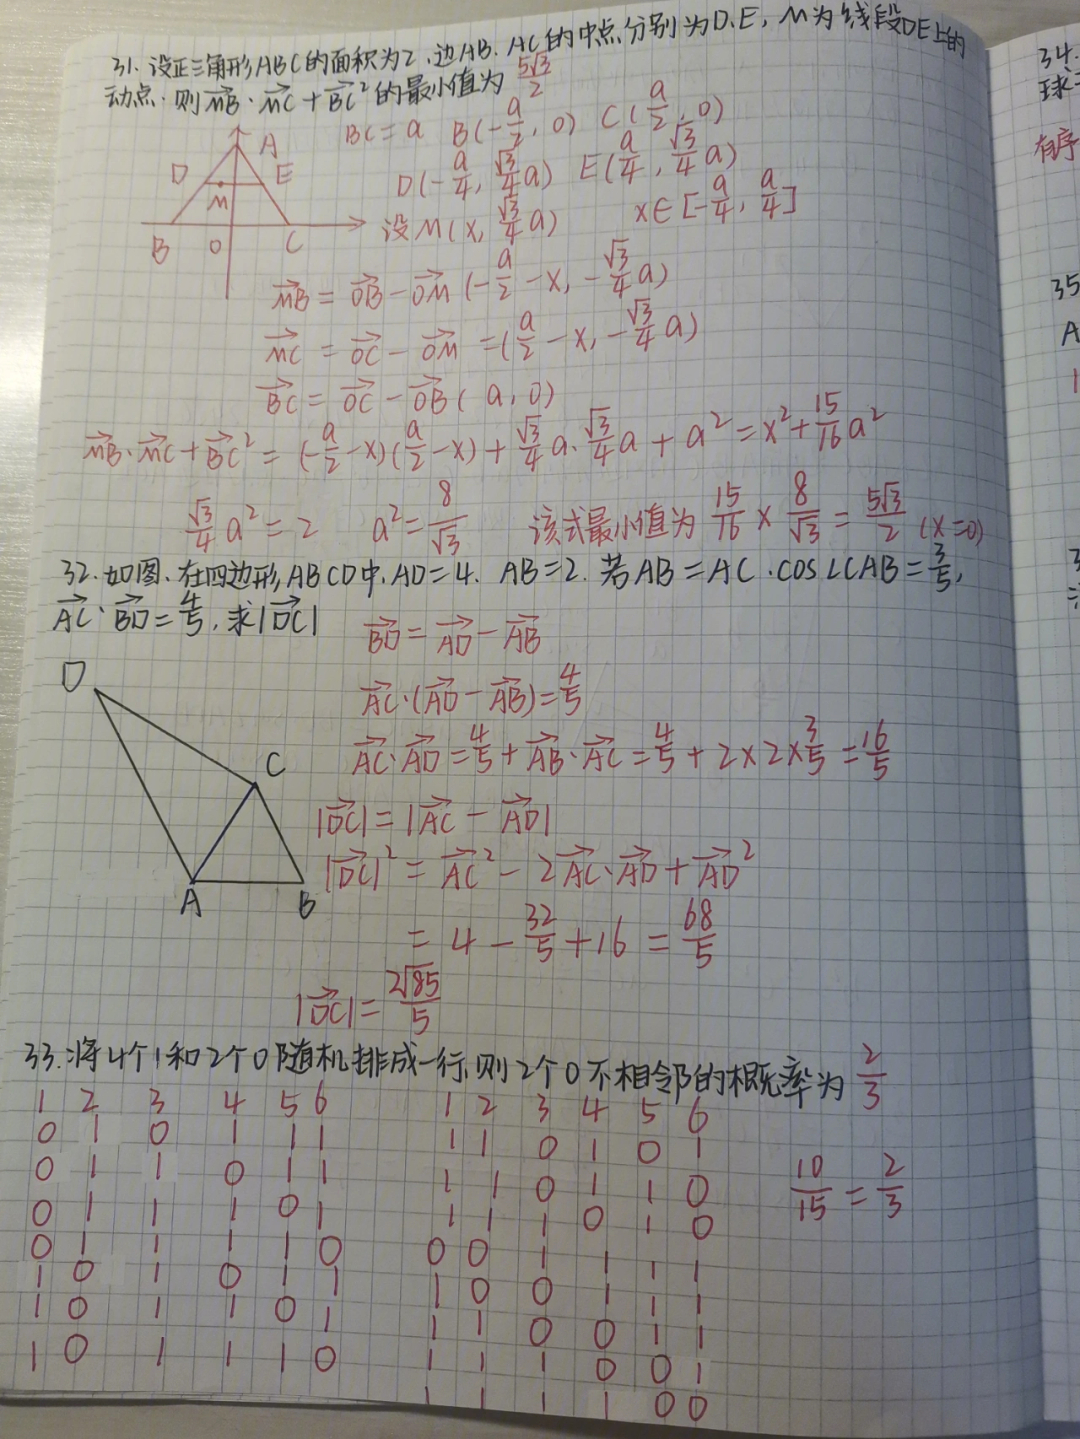 31. 设正三角形ABC的面积为2,边AB.AC的中点分别为D.E, M为线段DE上的
动点.则MB⃗·MC⃗+BC⃗²的最小值为 5√3/2
BC=a B(-a/2, 0) C(a/2, 0)
A
D E
M
B O C
D(-a/4, √3/4a) E(a/4, √3/4a)
设M(x, √3/4a) x∈[-a/4, a/4]
MB⃗ = OB⃗-OM⃗ (-a/2-x, -√3/4a)
MC⃗ = OC⃗-OM⃗ =(a/2-x, -√3/4a)
BC⃗ = OC⃗-OB⃗ (a, 0)
MB⃗·MC⃗+BC⃗² = (-a/2-x)(a/2-x) + √3/4a·√3/4a + a² = x²+15/16a²
√3/4a²=2 a²=8/√3 该式最小值为 15/16 × 8/√3 = 5√3/2 (x=0)
32.如图.在四边形ABCD中.AD=4. AB=2.若AB=AC.cos∠CAB=3/5,
AC⃗·BD⃗=4/5,求|DC⃗|
BD⃗ = AD⃗-AB⃗
D
AC⃗·(AD⃗-AB⃗)=4/5
AC⃗·AD⃗=4/5+AB⃗·AC⃗=4/5+2×2×3/5=16/5
C
|DC⃗|=|AC⃗-AD⃗|
|DC⃗|² = AC⃗²-2AC⃗·AD⃗+AD⃗²
A B
= 4-32/5+16 = 68/5
|DC⃗|=2√85/5
33.将4个1和2个0随机排成一行,则2个0不相邻的概率为 2/3
1 2 3 4 5 6 1 2 3 4 5 6
0 1 0 1 1 1 1 1 0 1 0 1
0 1 1 0 1 1 1 1 0 1 1 0 10/15=2/3
0 1 1 1 0 1 1 1 1 0 1 0
0 1 1 1 1 0 0 0 1 1 1 1
1 0 1 0 1 1 1 0 0 1 1 1
1 0 1 1 0 1 1 1 0 0 1 1
1 0 1 1 1 0 1 1 1 0 0 1
1 1 1 1 0 0
34.
球
有序
35
A
1
3